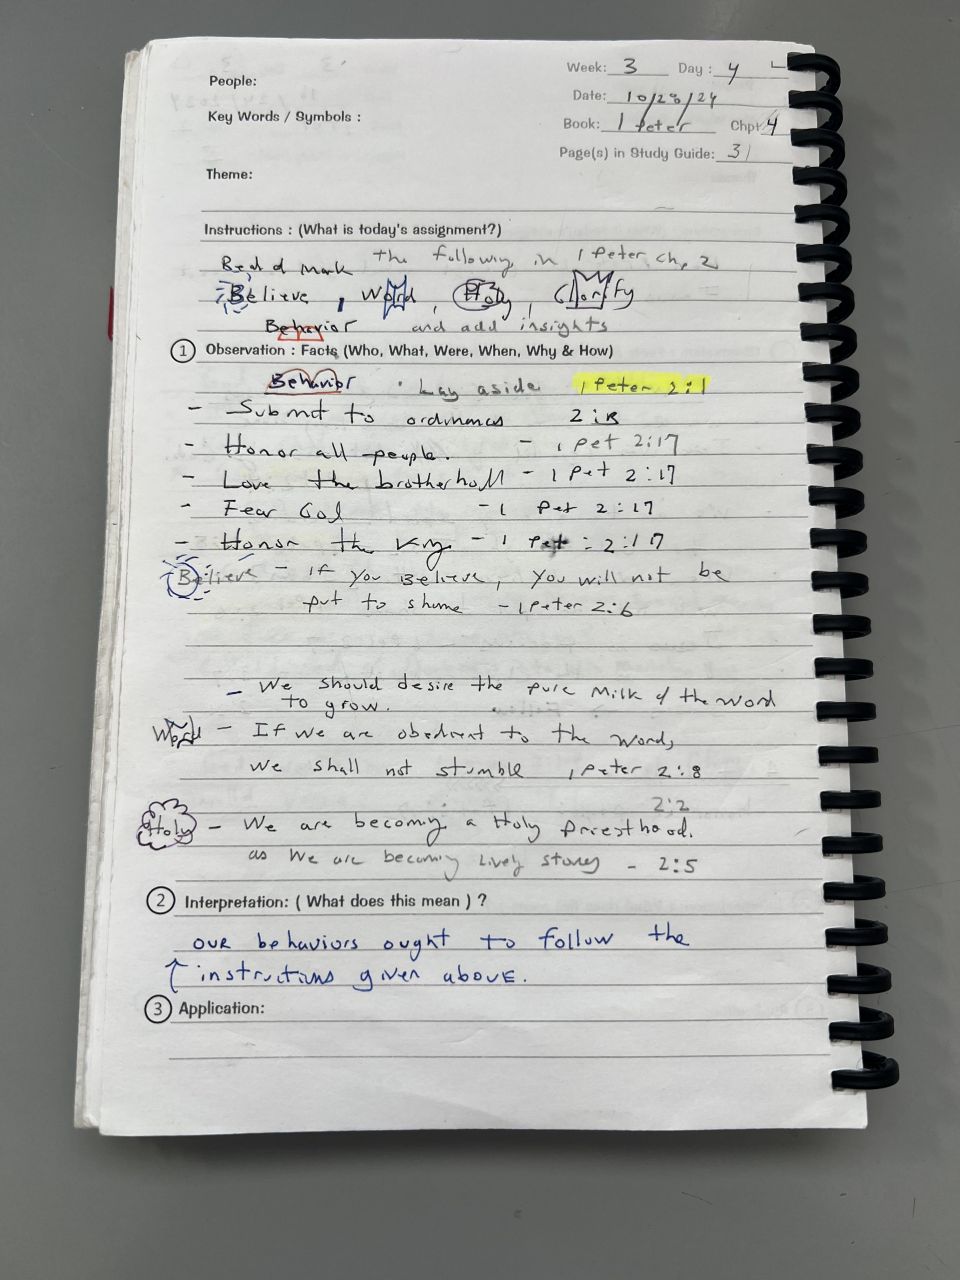 People:
Week: 3 Day: 4
Date: 10/28/24
Key Words / Symbols :
Book: 1 Peter Chpt 4
Page(s) in Study Guide: 31
Theme:
Instructions : (What is today's assignment?)
Read & Mark the following in 1 Peter ch, 2
Believe, Word, Holy, Glorify
Behavior and add insights
1 Observation : Facts (Who, What, Were, When, Why & How)
Behavior · Lay aside 1 Peter 2:1
- Submit to ordinances 2:13
- Honor all people. - 1 pet 2:17
- Love the brotherhood - 1 Pet 2:17
- Fear God - 1 Pet 2:17
- Honor the King - 1 Pet : 2:17
Believe - If you Believe, you will not be
put to shame - 1 Peter 2:6
- We should desire the pure Milk of the word
to grow.
Word - If we are obedient to the word,
we shall not stumble 1 Peter 2:8
2:2
Holy - We are becoming a Holy Priesthood.
as We are becoming Lively stones - 2:5
2 Interpretation: ( What does this mean ) ?
our behaviors ought to follow the
↑ instructions given above.
3 Application: